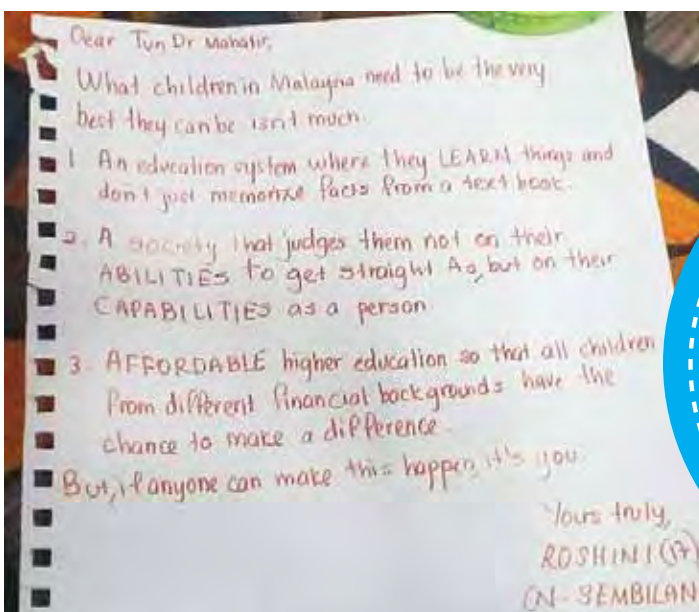 Dear Tun Dr Mahatir,
What children in Malaysia need to be the very
best they can be isn't much.
1 An education system where they LEARN things and
don't just memorize facts from a text book.
2. A society that judges them not on their
ABILITIES to get straight As, but on their
CAPABILITIES as a person.
3. AFFORDABLE higher education so that all children
from different financial backgrounds have the
chance to make a difference.
But, if anyone can make this happen, it's you.
Yours truly,
ROSHINI (17)
(N. SEMBILAN